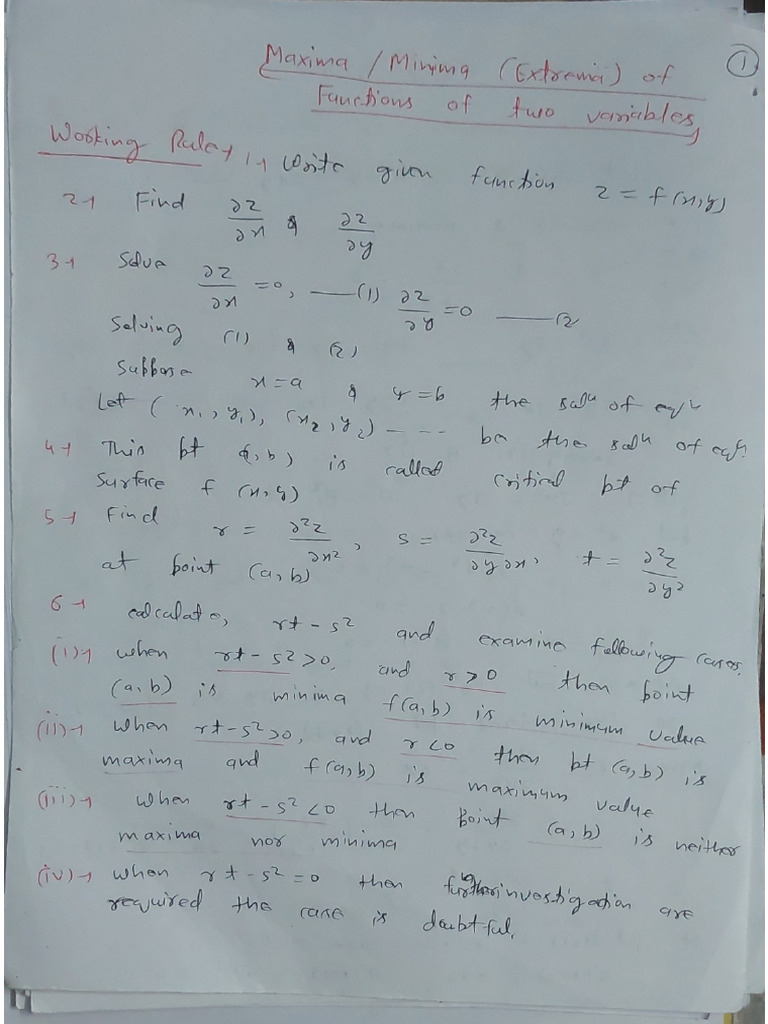 ①
Maxima / Minima (Extrema) of
Functions of two variables
Working Rule → 1→ Write given function z = f(x,y)
2→ Find ∂z/∂x & ∂z/∂y
3→ Solve ∂z/∂x = 0, —(1) ∂z/∂y = 0 —(2
Solving (1) & (2)
Suppose x = a & y = b the solⁿ of eqⁿ
Let (x₁, y₁), (x₂, y₂) - - - be the solⁿ of eqⁿ.
4→ This pt (a, b) is called critical pt of
Surface f (x,y)
5→ Find r = ∂²z/∂x², s = ∂²z/∂y∂x, t = ∂²z/∂y²
at point (a, b)
6→ calculate, rt - s² and examine following cases.
(i)→ when rt - s² > 0, and r > 0 then point
(a, b) is minima f(a, b) is minimum value
(ii)→ when rt - s² > 0, and r < 0 then pt (a, b) is
maxima and f(a, b) is maximum value
(iii)→ when rt - s² < 0 then point (a, b) is neither
maxima nor minima
(iv)→ when rt - s² = 0 then further investigation are
required the case is doubtful.